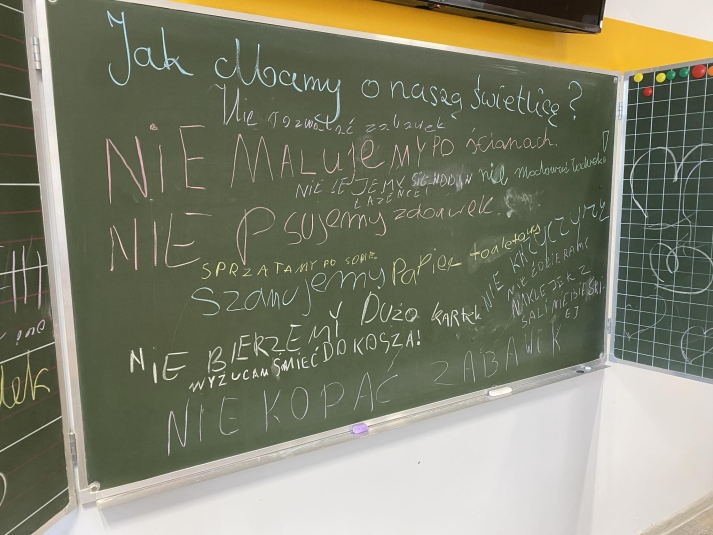 Jak dbamy o naszą świetlicę?
Nie rozwalać zabawek
NIE MALUJEMY PO ścianach.
NIE LEJEMY
nie
ŁAZIENCE!
NIE Psujemy zabawek.
SPRZĄTAMY PO SOBIE
Szanujemy Papier toaletowy
NIE KRZYCZYMY
NIE ZDBIERAMY
NAKLEJEK Z
SALI MIEJSIESKI-
EJ
NIE BIERZEMY DUŻO KARTEK
WYZUCAM ŚMIEĆ DO KOSZA!
NIE KOPAĆ ZABAWEK